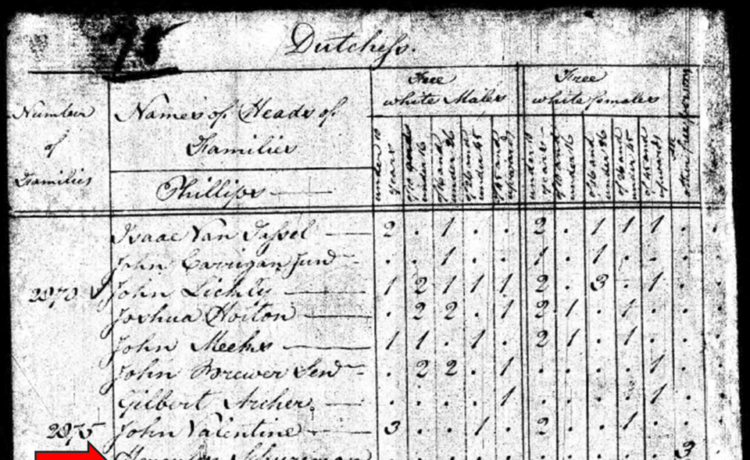 75
Dutchess.
Number of Families
Names of Heads of Families
Free white Males
Free white females
under 10 years
of 10 and under 16
of 16 and under 26
of 26 and under 45
of 45 and upwards
under 10 years
of 10 and under 16
of 16 and under 26
of 26 and under 45
of 45 and upwards
Phillips
Isaac Van Tassel 2 . 1 . . 2 . 1 1 1 .
John Carrigan Junr . . 1 . . 1 . 1 . . .
2970 John Lickly 1 2 1 1 1 2 . 3 . 1 .
Joshua Hoiton . 2 2 . 1 2 1 . 1 . .
John Meeks 1 1 . 1 . 2 1 . 1 . .
John Brewer Senr . 2 2 . 1 . . . . 1 .
Gilbert Archer . . . . 1 . . . . 1 .
2975 John Valentine 3 . . 1 . 2 . . 1 . .
3